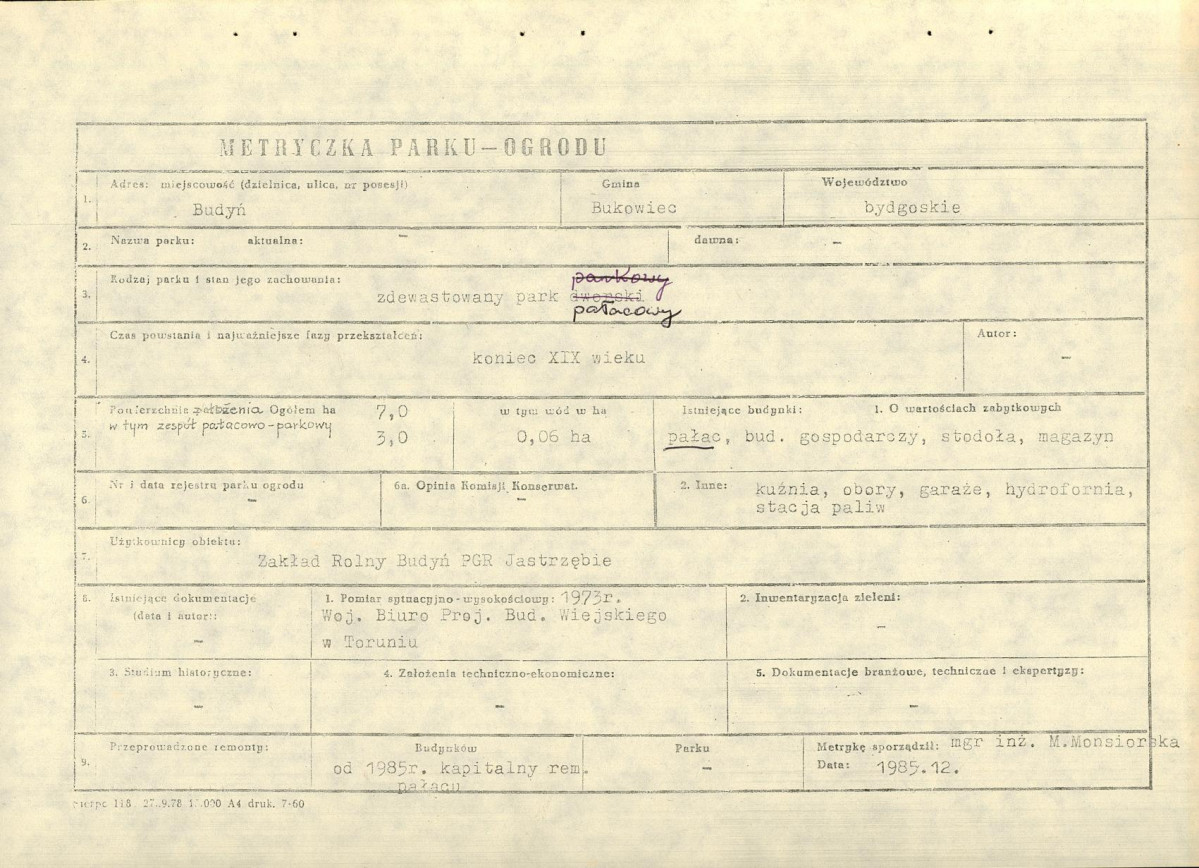 METRYCZKA PARKU-OGRODU
1. Adres: miejscowość (dzielnica, ulica, nr posesji) Gmina Województwo
Budyń Bukowiec bydgoskie
2. Nazwa parku: aktualna: - dawna: -
3. Rodzaj parku i stan jego zachowania: parkowy
zdewastowany park dworski
pałacowy
4. Czas powstania i najważniejsze fazy przekształceń: Autor:
koniec XIX wieku -
5. Powierzchnia założenia Ogółem ha 7,0 w tym wód w ha Istniejące budynki: 1. O wartościach zabytkowych
w tym zespół pałacowo-parkowy 3,0 0,06 ha pałac, bud. gospodarczy, stodoła, magazyn
6. Nr i data rejestru parku ogrodu - 6a. Opinia Komisji Konserwat. - 2. Inne: kuźnia, obory, garaże, hydrofornia,
stacja paliw
7. Użytkownicy obiektu:
Zakład Rolny Budyń PGR Jastrzębie
8. Istniejące dokumentacje (data i autor): - 1. Pomiar sytuacyjno-wysokościowy: 1973r. 2. Inwentaryzacja zieleni: -
Woj. Biuro Proj. Bud. Wiejskiego
w Toruniu
3. Studium historyczne: - 4. Założenia techniczno-ekonomiczne: - 5. Dokumentacje branżowe, techniczne i ekspertyzy: -
9. Przeprowadzone remonty: Budynków Parku Metrykę sporządził: mgr inż. M.Monsiorska
od 1985r. kapitalny rem. - Data: 1985.12.
pałacu
118 27.9.78 A4 druk. 7-60